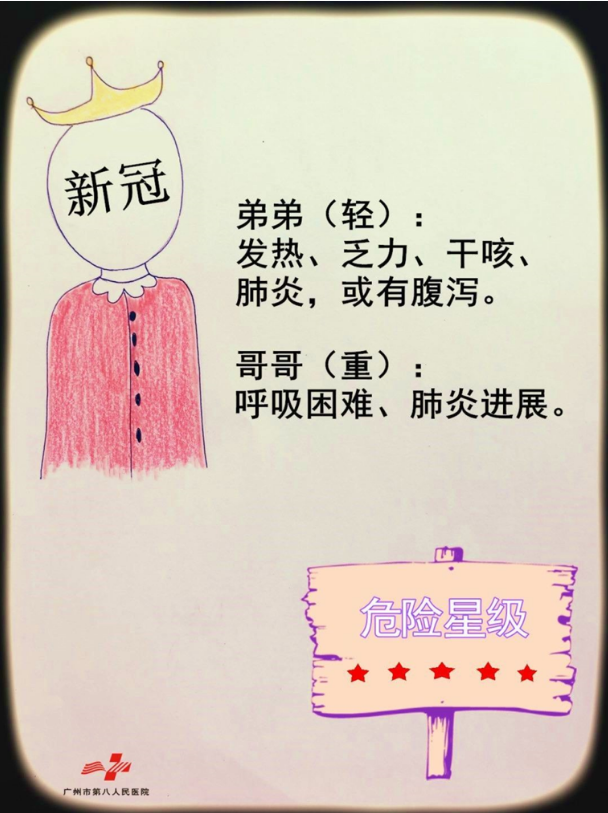 新冠
弟弟（轻）：
发热、乏力、干咳、
肺炎，或有腹泻。
哥哥（重）：
呼吸困难、肺炎进展。
危险星级
广州市第八人民医院